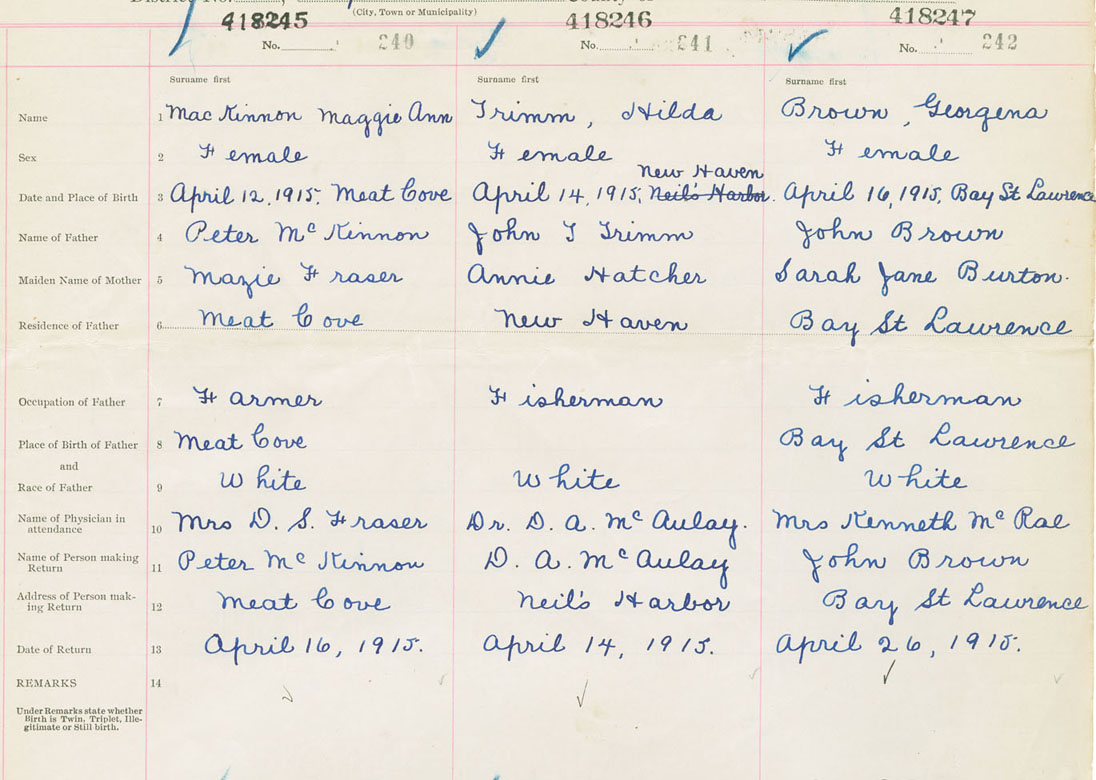 (City, Town or Municipality)
418245 418246 418247
No. 240 No. 241 No. 242
Surname first Surname first Surname first
Name 1 Mac Kinnon Maggie Ann Trimm, Hilda Brown, Georgena
Sex 2 Female Female Female
New Haven
Date and Place of Birth 3 April 12, 1915, Meat Cove April 14, 1915, Neil's Harbor. April 16, 1915, Bay St Lawrence
Name of Father 4 Peter Mc Kinnon John T Trimm John Brown
Maiden Name of Mother 5 Mazie Fraser Annie Hatcher Sarah Jane Burton.
Residence of Father 6 Meat Cove New Haven Bay St Lawrence
Occupation of Father 7 Farmer Fisherman Fisherman
Place of Birth of Father 8 Meat Cove Bay St Lawrence
and
Race of Father 9 White White White
Name of Physician in
attendance 10 Mrs D. S. Fraser Dr. D. A. Mc Aulay. Mrs Kenneth Mc Rae
Name of Person making
Return 11 Peter Mc Kinnon D. A. Mc Aulay John Brown
Address of Person mak-
ing Return 12 Meat Cove Neil's Harbor Bay St Lawrence
Date of Return 13 April 16, 1915. April 14, 1915. April 26, 1915.
REMARKS 14
Under Remarks state whether
Birth is Twin, Triplet, Ille-
gitimate or Still-birth.